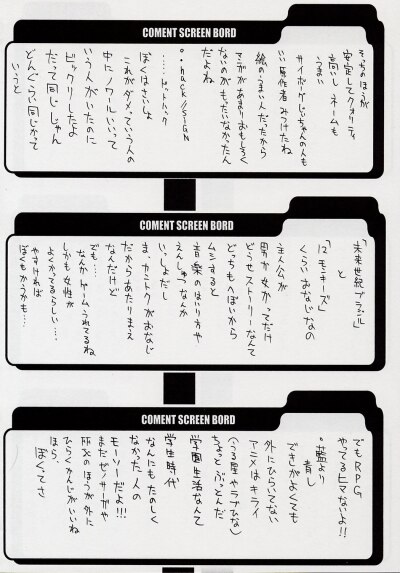 COMENT SCREEN BORD
そっちのほうが
安定してクォリティ
高いし ネームも
うまい
サイボーグじいちゃんの人も
いい原作者 みつけたね
絵のうまい人だったから
マンガが あまりおもしろく
ないのが もったいなかったん
だよね
。.hack//SIGN
……ドットハック
ぼくはさいしょ
これがダメっていう人の
中にノワールいいって
いう人がいたのに
ビックリしたよ
だって同じじゃん
どんぐらい同じかって
いうと
COMENT SCREEN BORD
「未来世紀ブラジル」
と
「12モンキーズ」
くらいおなじなの
主人公が
男か女かってだけ
どうせストーリーなんて
どっちもへぼいから
ムシすると
音楽のはいり方や
えんしゅつなんか
いっしょだし
ま、カントクがおなじ
だからあたりまえ
なんだけど
でも…
なんかゲームうれてるね
しかも女性が
よくかってるらしい…
やすければ
ぼくもかうかも…
COMENT SCREEN BORD
でもRPG
やってるヒマないよ!!
。藍より
青し
できがよくても
外にひらいてない
アニメはキライ
(うる星やラブひな)
ちょっとぶっとんだ
学園生活なんて
学生時代
なんにもたのしく
なかった人の
モーソーだよ!!!
まだゼノサーガや
のほうが外に
ひらくかんじがいいね
ほら
ぼくってさ